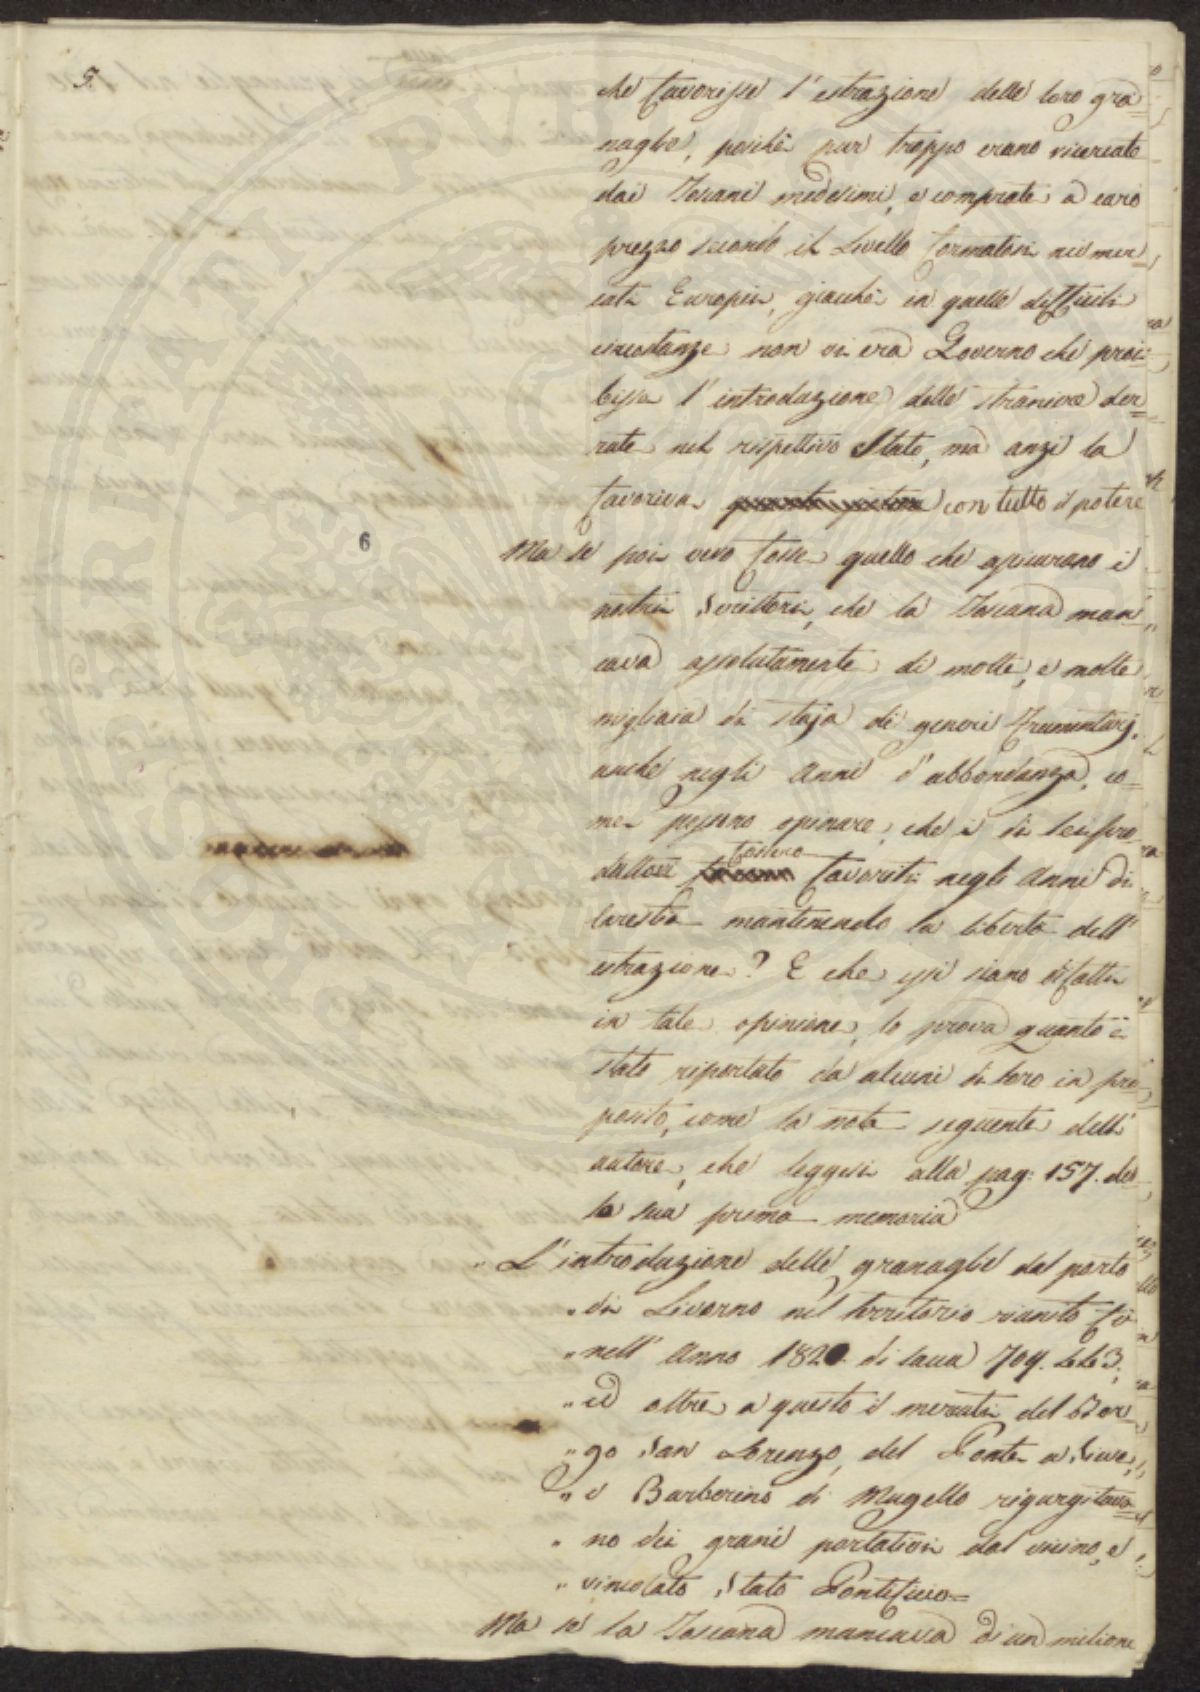 5.
che favorisse l'estrazione delle loro gra=
naglie, poichè pur troppo erano ricercate
dai Toscani medesimi, e comprate a caro
prezzo secondo il Livello formatosi nei mer=
cati Europei, giacchè in quelle difficili
circostanze non vi era Governo che proi=
bisse l'introduzione delle straniere der=
rate nel rispettivo Stato, ma anzi la
favoriva con tutto il potere
6
Ma se poi vero fosse quello che assicurano i
nostri Scrittori, che la Toscana man=
cava assolutamente di molte, e molte
migliaia di staja di generi Frumentarj,
anche negli Anni d'abbondanza, co=
me possono opinare, che i di lei pro=
duttori fossero favoriti negli Anni di
Carestia mantenendo la libertà dell'
estrazione? E che essi siano difatti
in tale opinione, lo prova quanto è
stato riportato da alcuni di loro in pro=
posito, come la nota seguente dell'
autore, che leggesi alla pag: 157. del=
la sua prima memoria
" L'introduzione delle granaglie dal porto
" di Livorno nel territorio riunito fù
" nell'Anno 1820. di sacca 709. 3;
" ed oltre a questo i mercati del Bor=
" go San Lorenzo, del Ponte a Sieve,
" e Barberino di Mugello rigurgitava=
" no dei grani portativi dal vicino, e
" vincolato Stato Pontificio=
Ma se la Toscana mancava di un milione